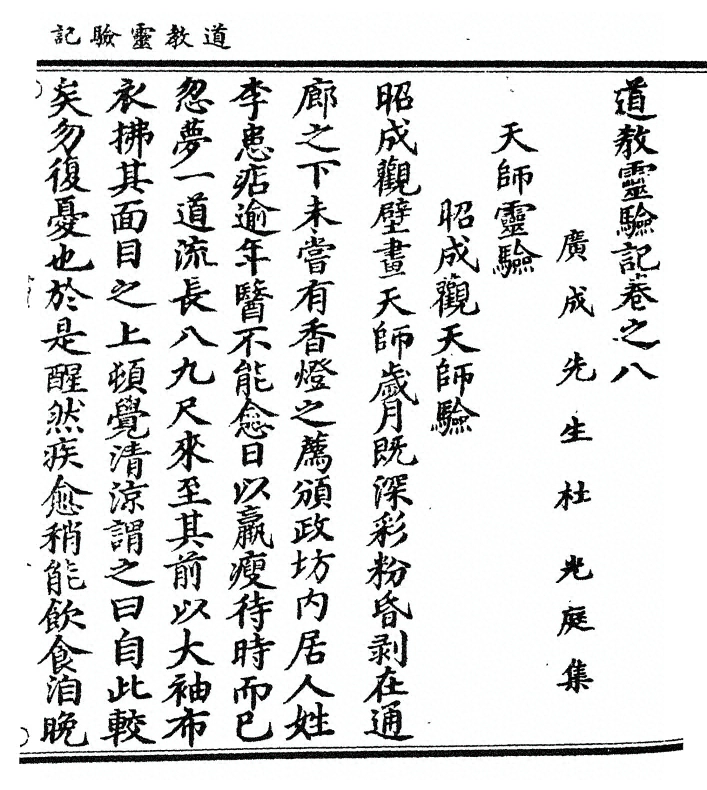 道教靈驗記
道教靈驗記卷之八
廣成先生杜光庭集
天師靈驗
昭成觀天師驗
昭成觀壁畫天師歲月既深彩粉昏剥在通
廊之下未嘗有香燈之薦頒政坊内居人姓
李患痁逾年醫不能愈日以羸瘦待時而已
忽夢一道流長八九尺來至其前以大袖布
衣拂其面目之上頓覺清涼謂之曰自此較
矣勿復憂也於是醒然疾愈稍能飲食洎晚